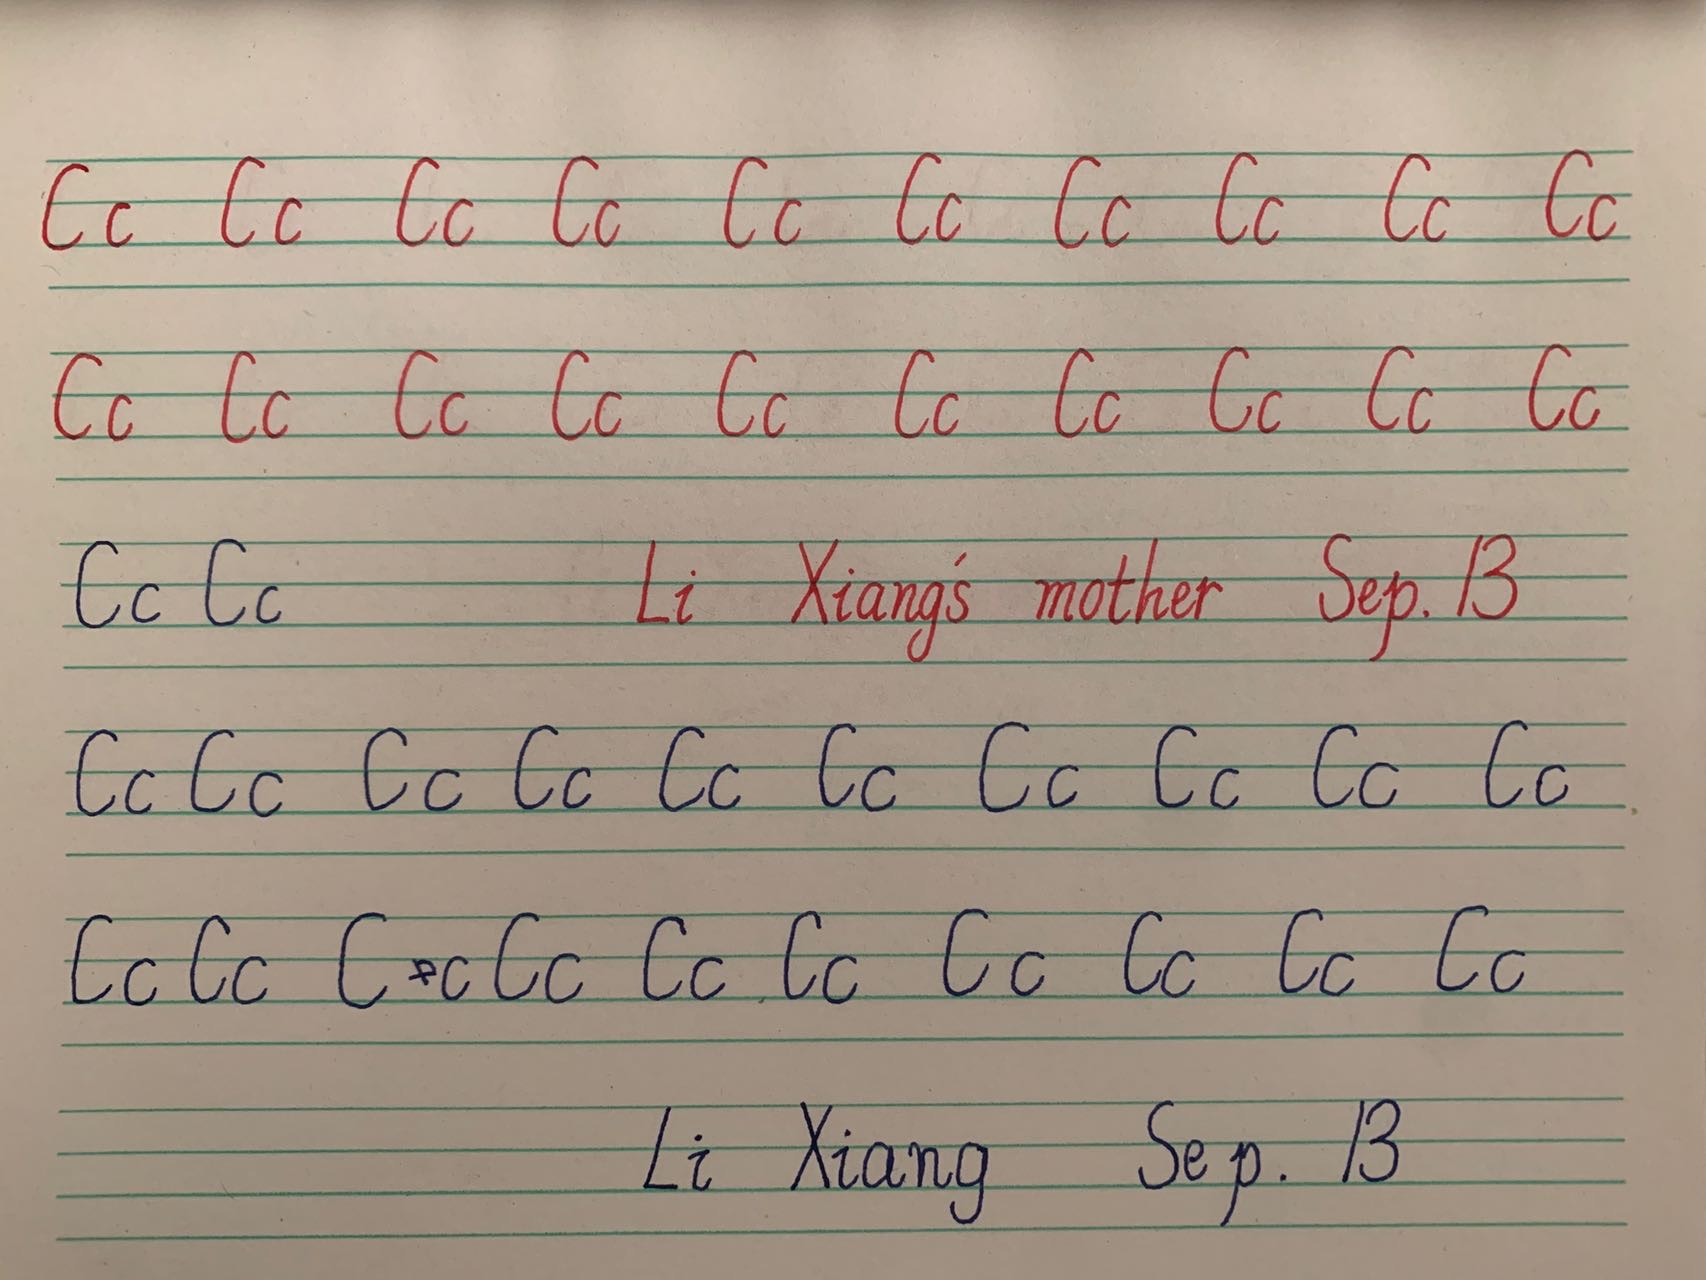 Cc Cc Cc Cc Cc Cc Cc Cc Cc Cc
Cc Cc Cc Cc Cc Cc Cc Cc Cc Cc
Cc Cc Li Xiang's mother Sep. 13
Cc Cc Cc Cc Cc Cc Cc Cc Cc Cc
Cc Cc C c Cc Cc Cc Cc Cc Cc Cc
Li Xiang Sep. 13